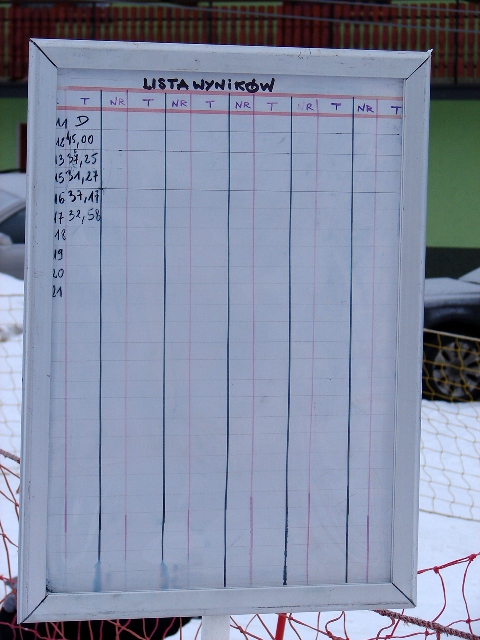 LISTA WYNIKÓW
T NR T NR T NR T NR T NR T
11 D
12 45,00
13 37,25
15 31,27
16 37,17
17 32,58
18
19
20
21